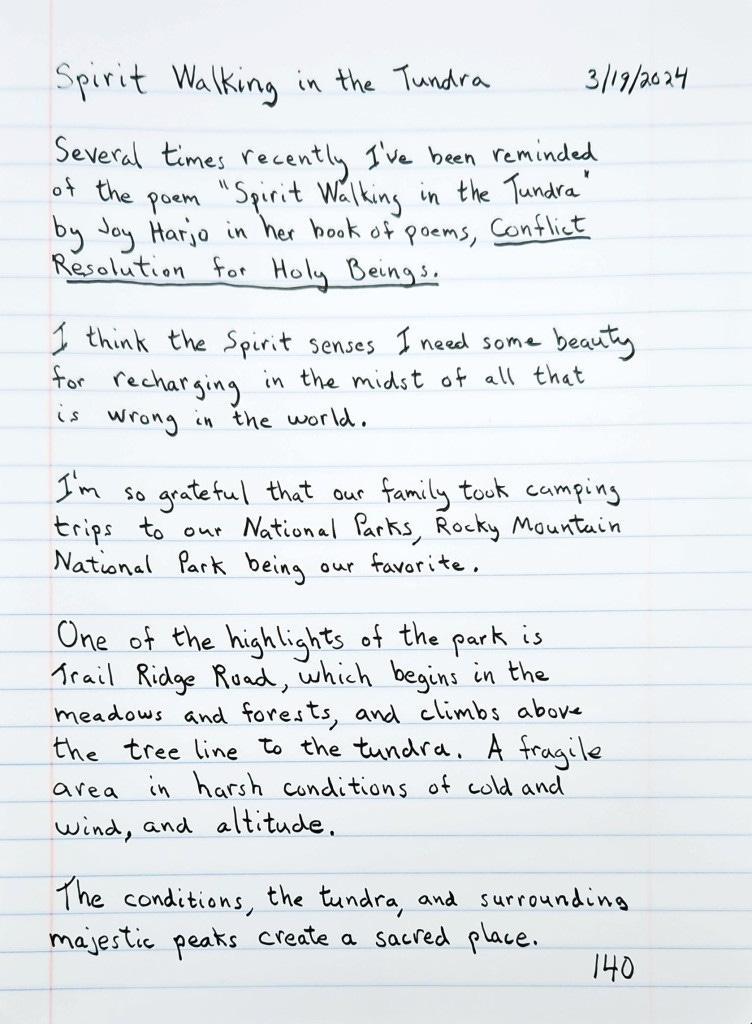 Spirit Walking in the Tundra 3/19/2024
Several times recently I've been reminded
of the poem "Spirit Walking in the Tundra"
by Joy Harjo in her book of poems, Conflict
Resolution for Holy Beings.
I think the Spirit senses I need some beauty
for recharging in the midst of all that
is wrong in the world.
I'm so grateful that our family took camping
trips to our National Parks, Rocky Mountain
National Park being our favorite.
One of the highlights of the park is
Trail Ridge Road, which begins in the
meadows and forests, and climbs above
the tree line to the tundra. A fragile
area in harsh conditions of cold and
wind, and altitude.
The conditions, the tundra, and surrounding
majestic peaks create a sacred place.
140